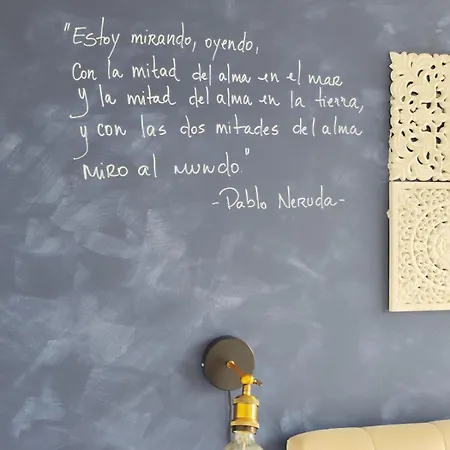 "Estoy mirando, oyendo,
con la mitad del alma en el mar
y la mitad del alma en la tierra,
y con las dos mitades del alma
miro al mundo."
- Pablo Neruda -